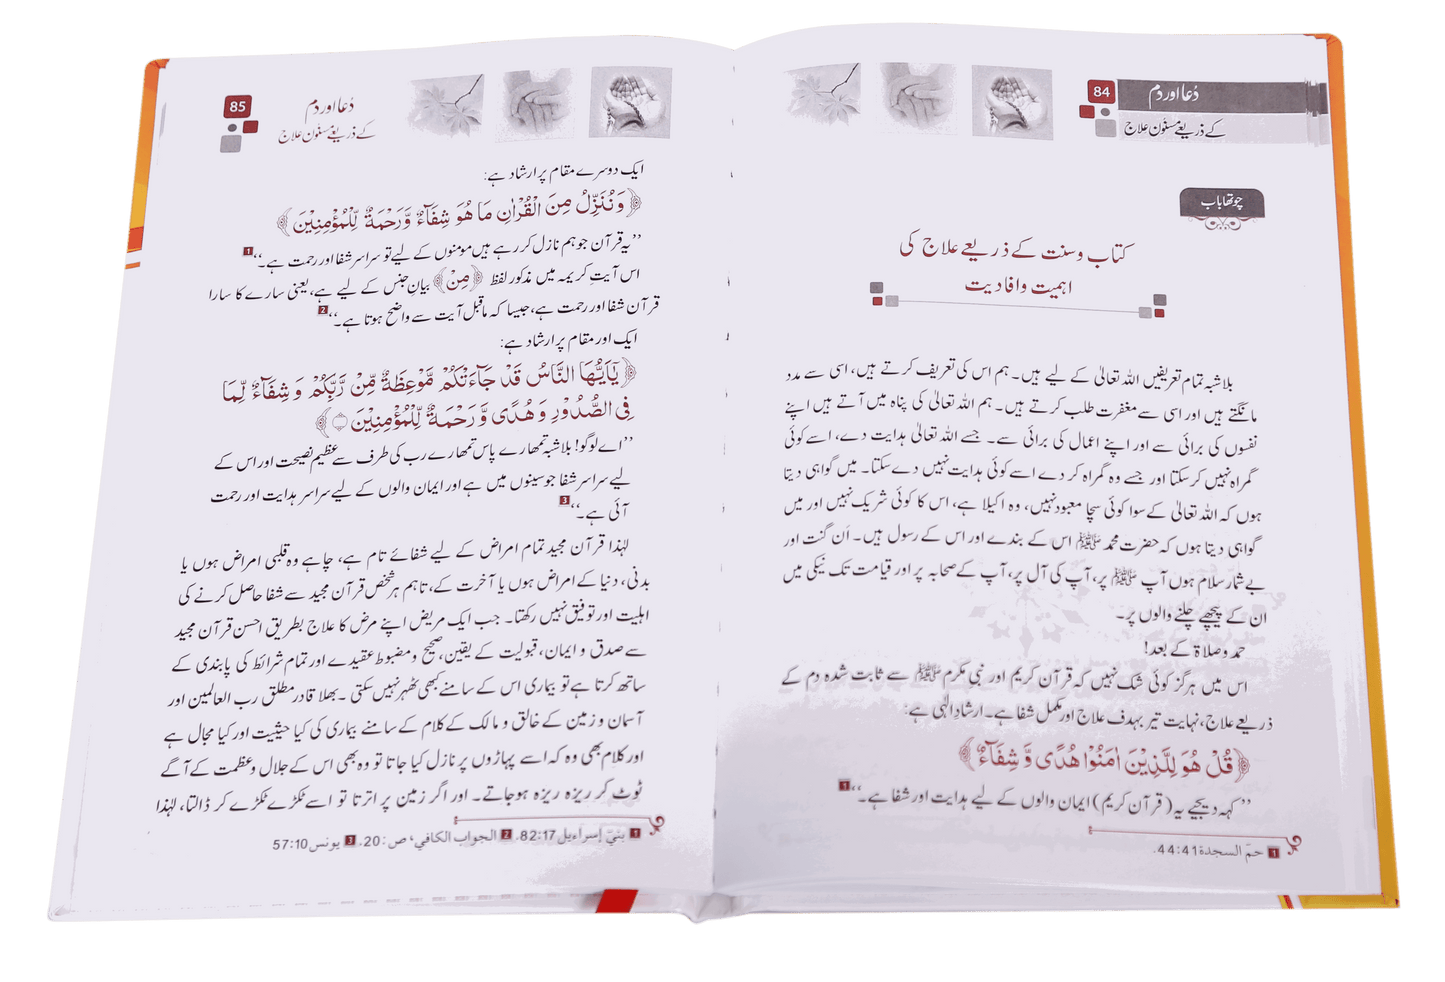 84
دُعا اور دم
کے ذریعے مسنون علاج
چوتھا باب
کتاب و سنت کے ذریعے علاج کی
اہمیت و افادیت
بلاشبہ تمام تعریفیں اللہ تعالیٰ کے لیے ہیں۔ ہم اس کی تعریف کرتے ہیں، اسی سے مدد
مانگتے ہیں اور اسی سے مغفرت طلب کرتے ہیں۔ ہم اللہ تعالیٰ کی پناہ میں آتے ہیں اپنے
نفسوں کی برائی سے اور اپنے اعمال کی برائی سے۔ جسے اللہ تعالیٰ ہدایت دے، اسے کوئی
گمراہ نہیں کر سکتا اور جسے وہ گمراہ کر دے اسے کوئی ہدایت نہیں دے سکتا۔ میں گواہی دیتا
ہوں کہ اللہ تعالیٰ کے سوا کوئی سچا معبود نہیں، وہ اکیلا ہے، اس کا کوئی شریک نہیں اور میں
گواہی دیتا ہوں کہ حضرت محمد ﷺ اس کے بندے اور اس کے رسول ہیں۔ اَن گنت اور
بے شمار سلام ہوں آپ ﷺ پر، آپ کی آل پر، آپ کے صحابہ پر اور قیامت تک نیکی میں
ان کے پیچھے چلنے والوں پر۔
حمد و صلاۃ کے بعد!
اس میں ہرگز کوئی شک نہیں کہ قرآن کریم اور نبی مکرم ﷺ سے ثابت شدہ دم کے
ذریعے علاج، نہایت تیر بہدف علاج اور مکمل شفا ہے۔ ارشاد الٰہی ہے:
﴿قُلْ هُوَ لِلَّذِيْنَ اٰمَنُوْا هُدًى وَّ شِفَآءٌ﴾
’’کہہ دیجیے یہ (قرآن کریم) ایمان والوں کے لیے ہدایت اور شفا ہے۔‘‘ 1
1 حم السجدۃ 44:41.
85
دُعا اور دم
کے ذریعے مسنون علاج
ایک دوسرے مقام پر ارشاد ہے:
﴿وَ نُنَزِّلُ مِنَ الْقُرْاٰنِ مَا هُوَ شِفَآءٌ وَّ رَحْمَةٌ لِّلْمُؤْمِنِيْنَ﴾
’’یہ قرآن جو ہم نازل کر رہے ہیں مومنوں کے لیے تو سراسر شفا اور رحمت ہے۔‘‘ 1
اس آیتِ کریمہ میں مذکور لفظ ﴿مِنْ﴾ بیان جنس کے لیے ہے، یعنی سارے کا سارا
قرآن شفا اور رحمت ہے، جیسا کہ ماقبل آیت سے واضح ہوتا ہے۔‘‘ 2
ایک اور مقام پر ارشاد ہے:
﴿يٰٓاَيُّهَا النَّاسُ قَدْ جَآءَتْكُمْ مَّوْعِظَةٌ مِّنْ رَّبِّكُمْ وَ شِفَآءٌ لِّمَا
فِي الصُّدُوْرِ وَ هُدًى وَّ رَحْمَةٌ لِّلْمُؤْمِنِيْنَ﴾
’’اے لوگو! بلاشبہ تمھارے پاس تمھارے رب کی طرف سے عظیم نصیحت اور اس کے
لیے سراسر شفا جو سینوں میں ہے اور ایمان والوں کے لیے سراسر ہدایت اور رحمت
آئی ہے۔‘‘ 3
لہٰذا قرآن مجید تمام امراض کے لیے شفائے تام ہے، چاہے وہ قلبی امراض ہوں یا
بدنی، دنیا کے امراض ہوں یا آخرت کے، تاہم ہر شخص قرآن مجید سے شفا حاصل کرنے کی
اہلیت اور توفیق نہیں رکھتا۔ جب ایک مریض اپنے مرض کا علاج بطریق احسن قرآن مجید
سے صدق و ایمان، قبولیت کے یقین، صحیح و مضبوط عقیدے اور تمام شرائط کی پابندی کے
ساتھ کرتا ہے تو بیماری اس کے سامنے کبھی ٹھہر نہیں سکتی۔ بھلا قادر مطلق رب العالمین اور
آسمان و زمین کے خالق و مالک کے کلام کے سامنے بیماری کی کیا حیثیت اور کیا مجال ہے
اور کلام بھی وہ کہ اسے پہاڑوں پر نازل کیا جاتا تو وہ بھی اس کے جلال و عظمت کے آگے
ٹوٹ کر ریزہ ریزہ ہو جاتے۔ اور اگر زمین پر اترتا تو اسے ٹکڑے ٹکڑے کر ڈالتا، لہٰذا
1 بنيٓ إسرآءيل 82:17. 2 الجواب الكافي، ص:20. 3 يونس 57:10